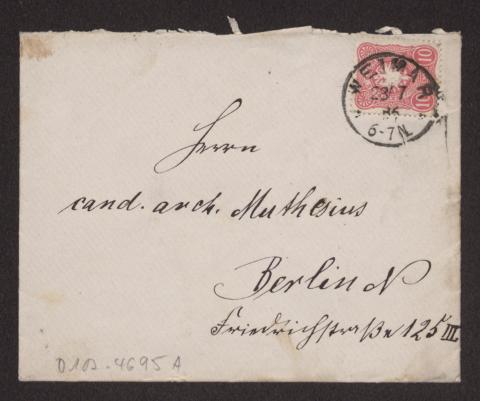 10 10
WEIMAR
23 7
86
6-7N.
Herrn
cand. arch. Muthesius
Berlin N
Friedrichstraße 125 III.
D102-4695 A